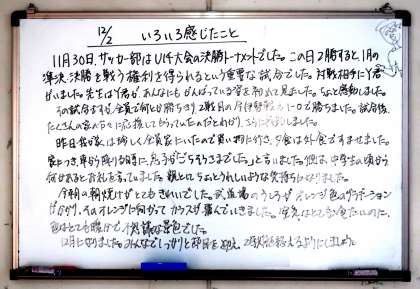 12/2 いろいろ感じたこと
11月30日、サッカー部はU14大会の決勝トーナメントでした。この日2勝すると、1月の
準決、決勝を戦う権利を得られるという重要な試合でした。対戦相手にY君
がいました。先生はY君があんなにもがんばっている姿を初めて見ました。ちょと感動しました。
その試合もずが、全員で何とか勝ちきり2戦目の伊野も1-0で勝ちました。試合後、
たくさんの家の方々に応援してもらっていたのだとわかり、さらに感動しました。
昨日我が家は珍しく全員家にいたので買い物に行き、夕食は外食ですませました。
家につき車から降りる時に、息子が「ごちそうさまでした。」と言いました。彼は、中学生の頃から
何かあるとお礼を言っていました。親としてちょとうれしいような気持ちになりました。
今朝の朝焼けがとてもきれいでした。武道場のうしろがオレンジ色のグラデーション
がかかり、そのオレンジに向かってカラスが飛んでいきました。空気はとても冷たいのに、
色はとても暖かで、不思議な景色でした。
12月になりました。みんなでしっかりと節目を迎え、2学期を終えるようにしましょう